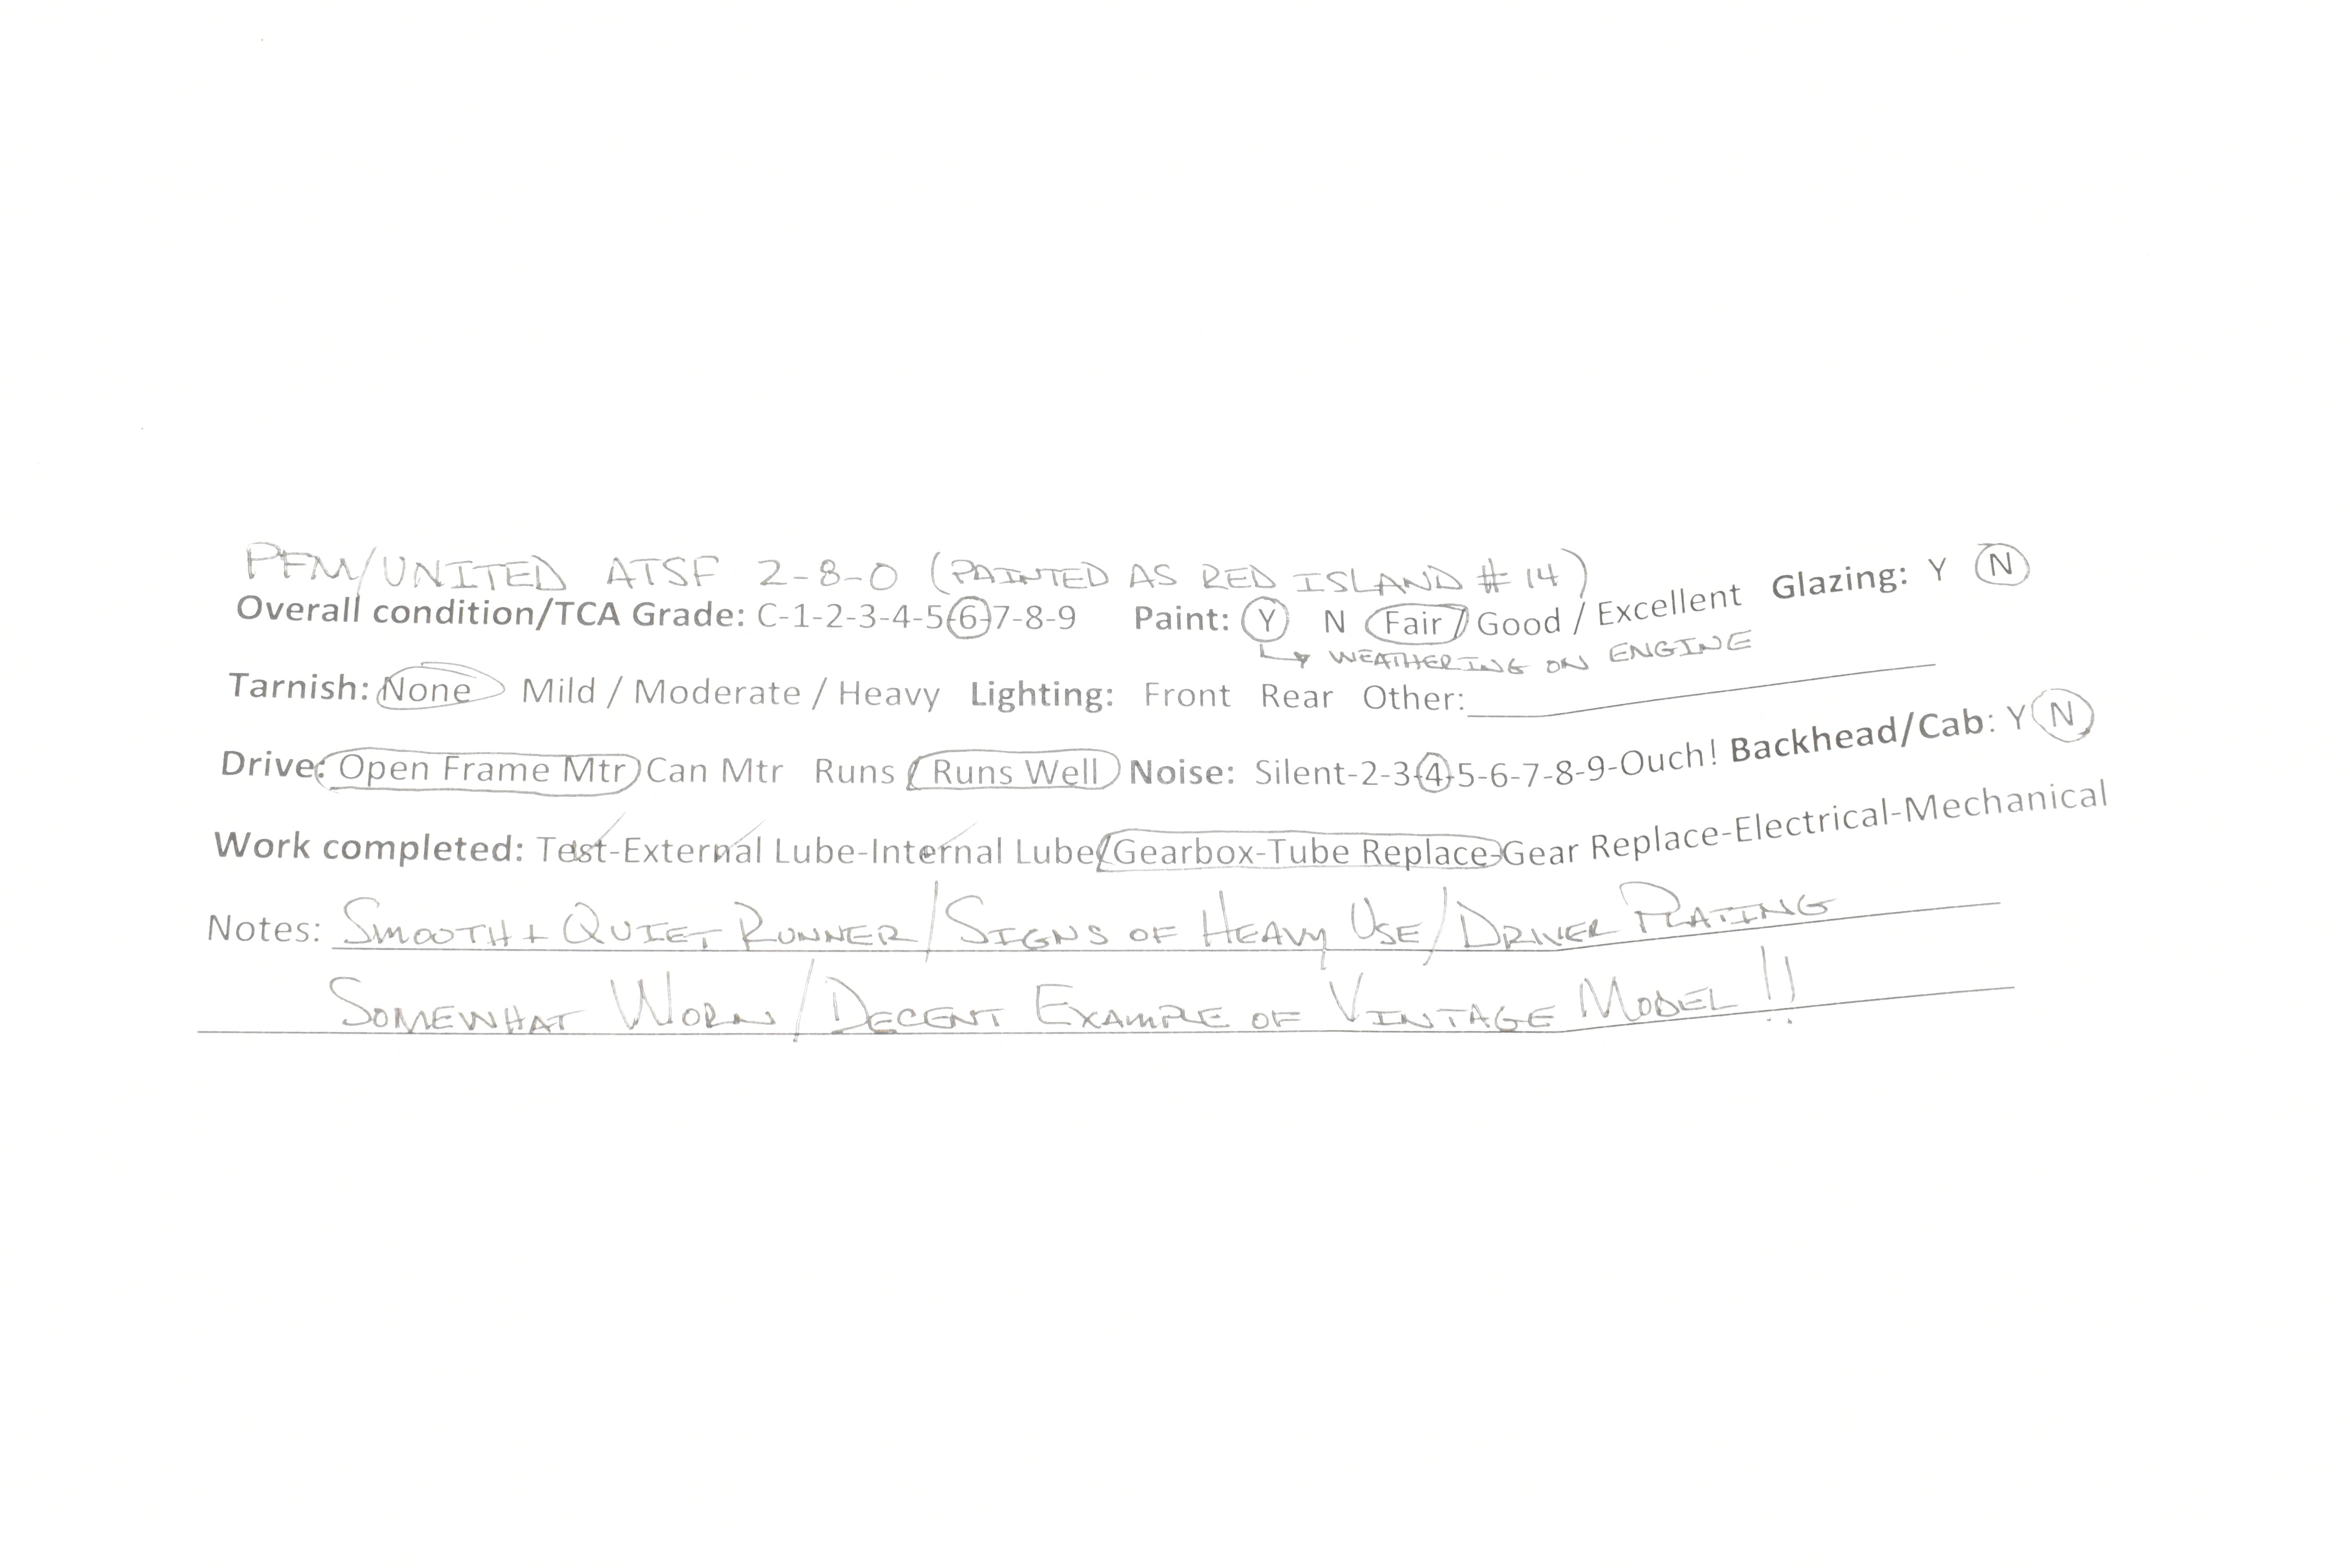 PFM/UNITED ATSF 2-8-0 (PAINTED AS RED ISLAND #14)
Overall condition/TCA Grade: C-1-2-3-4-5-6-7-8-9 Paint: Y N Fair / Good / Excellent Glazing: Y N
↳ WEATHERING ON ENGINE
Tarnish: None Mild / Moderate / Heavy Lighting: Front Rear Other:
Drive: Open Frame Mtr Can Mtr Runs / Runs Well Noise: Silent-2-3-4-5-6-7-8-9-Ouch! Backhead/Cab: Y N
Work completed: Test-External Lube-Internal Lube/Gearbox-Tube Replace-Gear Replace-Electrical-Mechanical
Notes: SMOOTH + QUIET RUNNER/SIGNS OF HEAVY USE/DRIVER PLATING
SOMEWHAT WORN/DECENT EXAMPLE OF VINTAGE MODEL!!